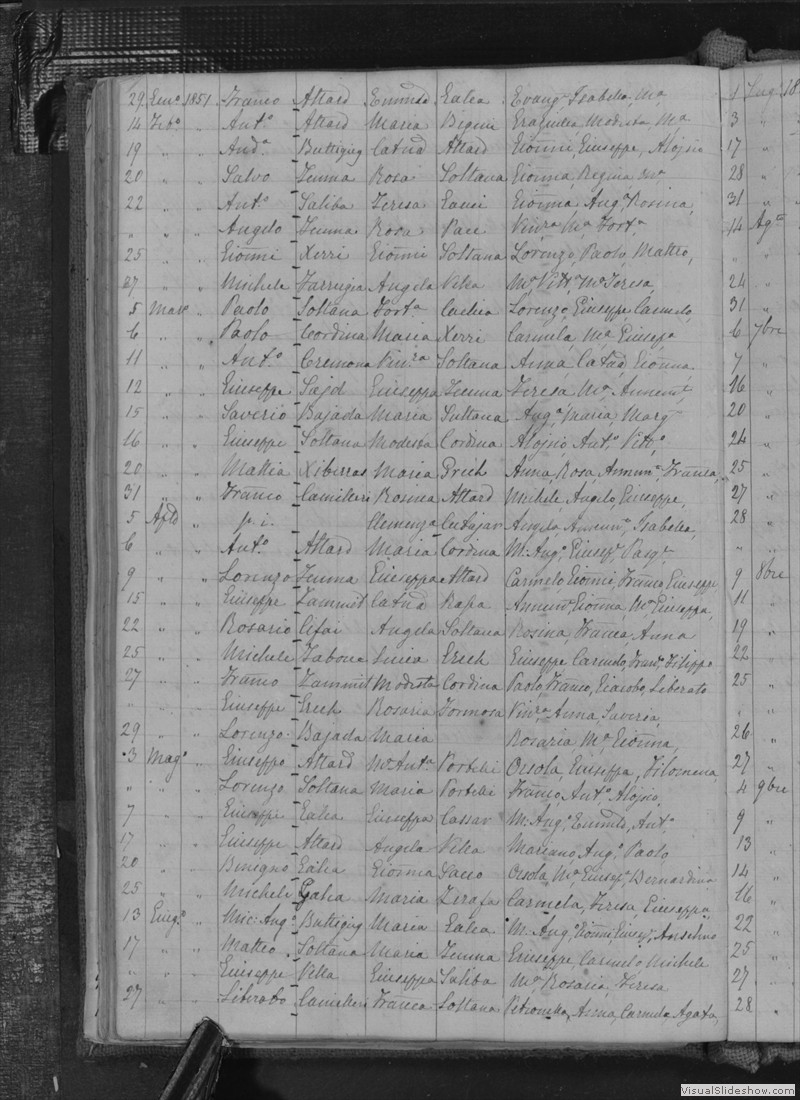 29 Enn.o 1851 Franco Attard Ermind Galea Evang.a Isabella M.a 1 Lug.
14 Feb.o " Ant.o Attard Maria Beguii Modesta M.a 3 "
19 " " And.a Buttigieg Catnd Attard Gionni Giuseppe, Alojsio 17 "
20 " " Salvo Zerafa Rosa Soltana Gionna, Regina 28 "
22 " " Ant.o Saliba Teresa Gauci Gionna Ang.a Rosina, 31 "
" " " Angelo Rosa Pace Vin.ra M.a Fort.a 14 Ag.to
25 " " Gionni Xerri Gionni Soltana Lorenzo, Paolo, Matteo, " "
27 " " Michele Farrugia Angela Vella M.a Vitt.a M.a Teresa, 24 "
5 Mar. " Paolo Soltana Fort.a Lorenzo, Giuseppe Carmelo, 31 "
6 " " Paolo Cordina Maria Xerri Carmela, M.a Giusep.a 6 7bre
11 " " Ant.o Cremona Vin.ra Soltana Anna, Catnd, Gionna 7 "
12 " " Giuseppe Sajd Giuseppa Teresa M.a Annun.t 16 "
15 " " Saverio Bajada Maria Sultana Ang.a Maria, Marg 20 "
16 " " Giuseppe Soltana Modesta Cordina Alojsio Ant.o Vitt.o 24 "
20 " " Mattia Xiberras Maria Grech Anna, Rosa, Annun.a Franca, 25 "
31 " " Franco Camilleri Rosina Attard Michele Angelo, Giuseppe, 27 "
5 Aple " p. i. Clemenza Cutajar Angela Annun.a, Isabella, 28 "
6 " " Ant.o Attard Maria Cordina M. Ang.o, Giusep.e Pasq.e " "
9 " " Lorenzo Giuseppa Attard Carmelo, Gionni, Franco Giuseppe, 9 8bre
15 " " Giuseppe Zammit Catnd Rapa Annun.a Gionna, M.a Giuseppa, 11 "
22 " " Rosario Cifai Angela Soltana Rosina, Franca, Anna 19 "
25 " " Michele Tabone Luca Grech Giuseppe Carmelo, Fran.o, Filippo 22 "
27 " " Franco Zammit Modesta Cordina Paolo, Franco, Giacobo, Liberato 25 "
" " " Giuseppe Grech Rosaria Formosa Vin.ra Anna, Saveria, " "
29 " " Lorenzo Bajada Maria Rosaria M.a Gionna, 26 "
3 Mag.o " Giuseppe Attard M.a Ant.a Portelli Orsola, Giuseppa, Filomena, 27 "
" " " Lorenzo Soltana Maria Portelli Franco, Ant.o Alojsio, 4 9bre
7 " " Giuseppe Galea Giuseppa Cassar M. Ang.o Ermind, Ant.o 9 "
17 " " Giuseppe Attard Angela Vella Mariano, Ang.o Paolo 13 "
20 " " Benigno Galea Gionna Orsola, M.a Giusep.a Bernardina 14 "
25 " " Michele Galea Maria Zerafa Carmela, Teresa, Giuseppa, 16 "
13 Giug.o " Mic: Ang.o Buttigieg Maria Galea M. Ang.o, Gionni, Giusep.e, Anselmo 22 "
17 " " Matteo Soltana Maria Giuseppe, Carmelo Michele 25 "
" " " Giuseppe Vella Giuseppa Saliba M.a Rosaria, Teresa 27 "
27 " " Liberato Camilleri Franca Soltana Petronilla, Anna, Carmela Agata, 28 "
VisualSlideshow.com